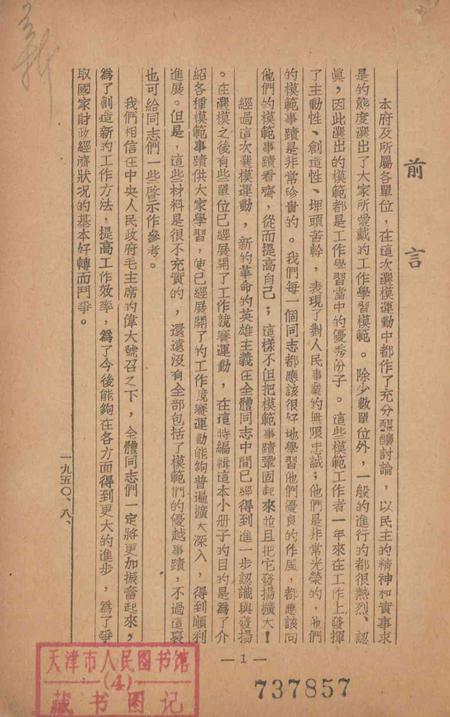 前言
本府及所屬各單位，在這次選模運動中都作了充分醞釀討論，以民主的精神和實事求
是的態度選出了大家所愛戴的工作學習模範。除少數單位外，一般的進行的都很熱烈、認
眞，因此選出的模範都是工作學習當中的優秀份子。這些模範工作者一年來在工作上發揮
了主動性、創造性、埋頭苦幹，表現了對人民事業的無限忠誠；他們是非常光榮的，他們
的模範事蹟是非常珍貴的。我們每一個同志都應該很好地學習他們優良的作風，都應該向
他們的模範事蹟看齊，從而提高自己；這樣不但把模範事蹟鞏固起來並且把它發揚擴大！
經過這次選模運動，新的革命的英雄主義在全體同志中間已經得到進一步認識與發揚
。在選模之後有些單位已經展開了工作競賽運動，在這時編輯這本小册子的目的是爲了介
紹各種模範事蹟供大家學習，使已經展開了的工作競賽運動能夠普遍擴大深入，得到順利
進展。但是，這些材料是很不充實的，還遠沒有全部包括了模範們的優越事蹟，不過這裏
也可給同志們一些啓示作參考。
我們相信在中央人民政府毛主席的偉大號召之下，全體同志們一定將更加振奮起來，
爲了創造新的工作方法，提高工作效率，爲了今後能夠在各方面得到更大的進步，爲了爭
取國家財政經濟狀况的基本好轉而鬥爭。
一九五〇、八、
—1—
天津市人民图书馆
(4)
藏书图记
737857